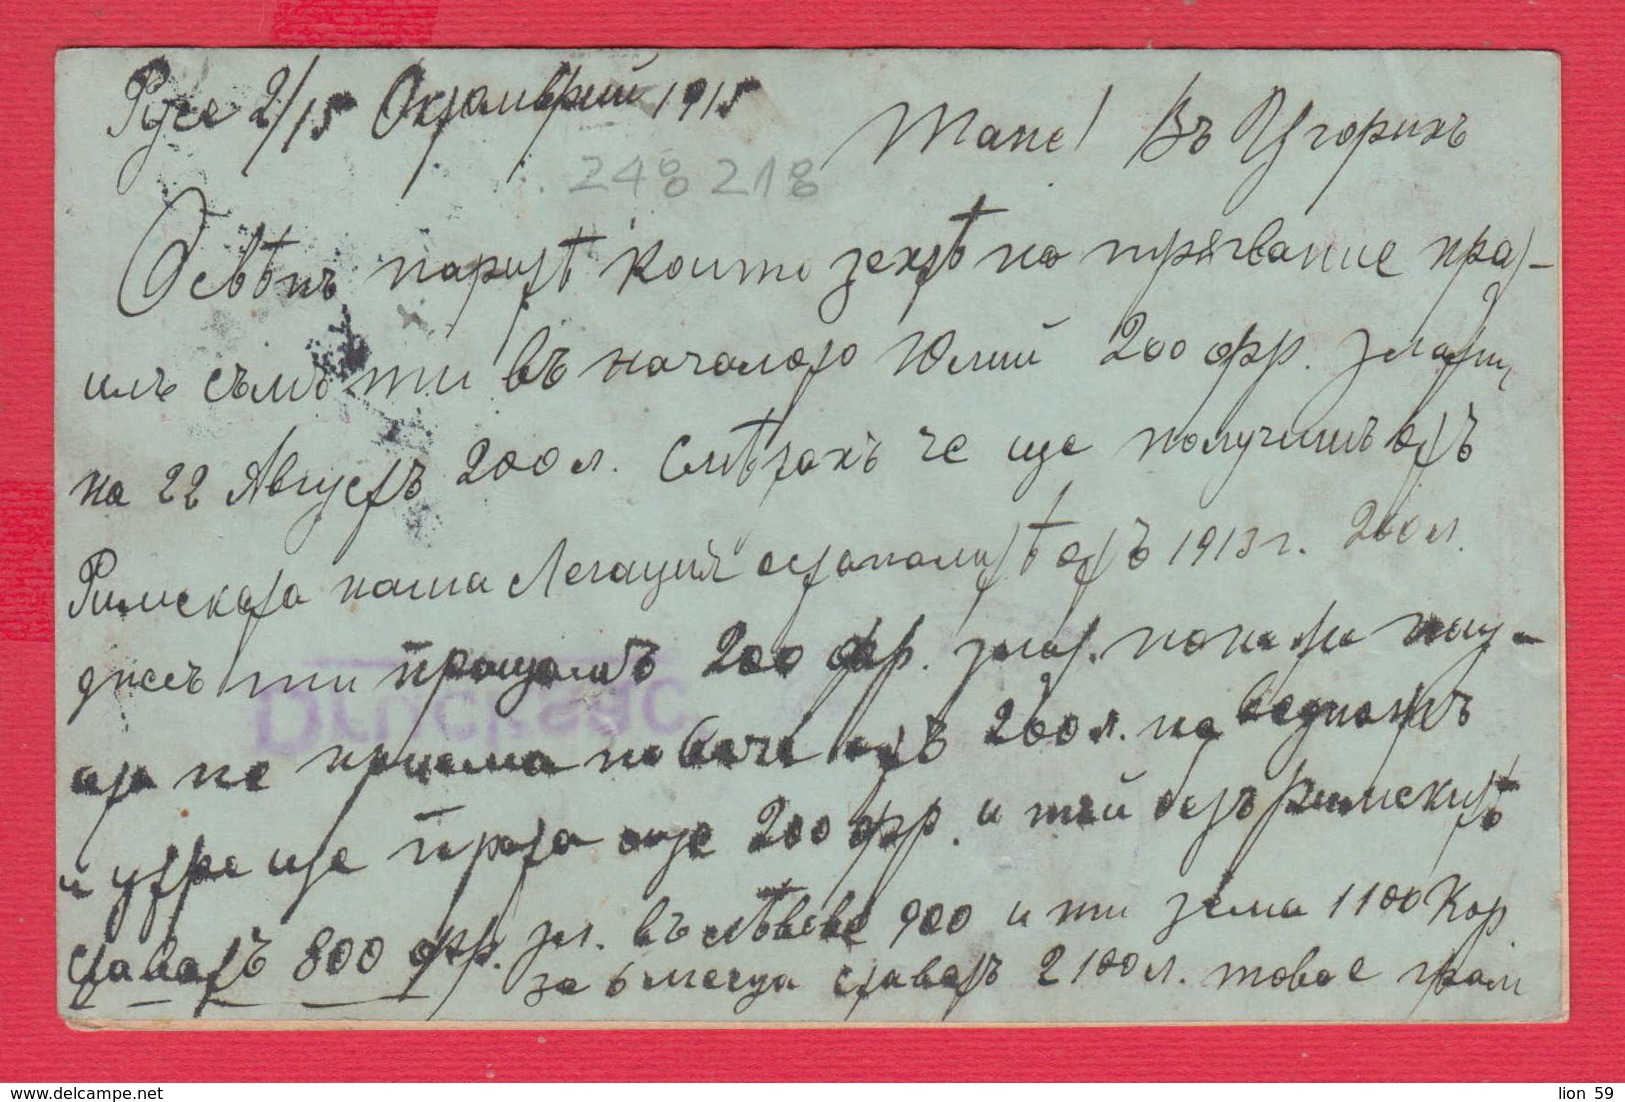 Русе 2/15 Октомврий 1915
248 218
Тане! Въ Цюрихъ
Освѣнъ паритѣ които зехтѣ на тръгвание пра-
илъ съмъ ти въ началото Юлий 200 фр. златни,
на 22 Августъ 200 л. Смѣтахъ че ще получишъ отъ
Римската наша Легация останалитѣ отъ 1913 г. 200 л.
днесъ ти пращамъ 200 фр. злат. понеже пощ-
ата не приема повече отъ 200 л. на веднажъ
и утре ще пратя още 200 фр. и тъй безъ Римскитѣ
ставатъ 800 фр. зл. въ левове 900 и ти зема 1100 Кор
за 6 месеца ставатъ 2100 л. това е грам
Drucksac
lion 59